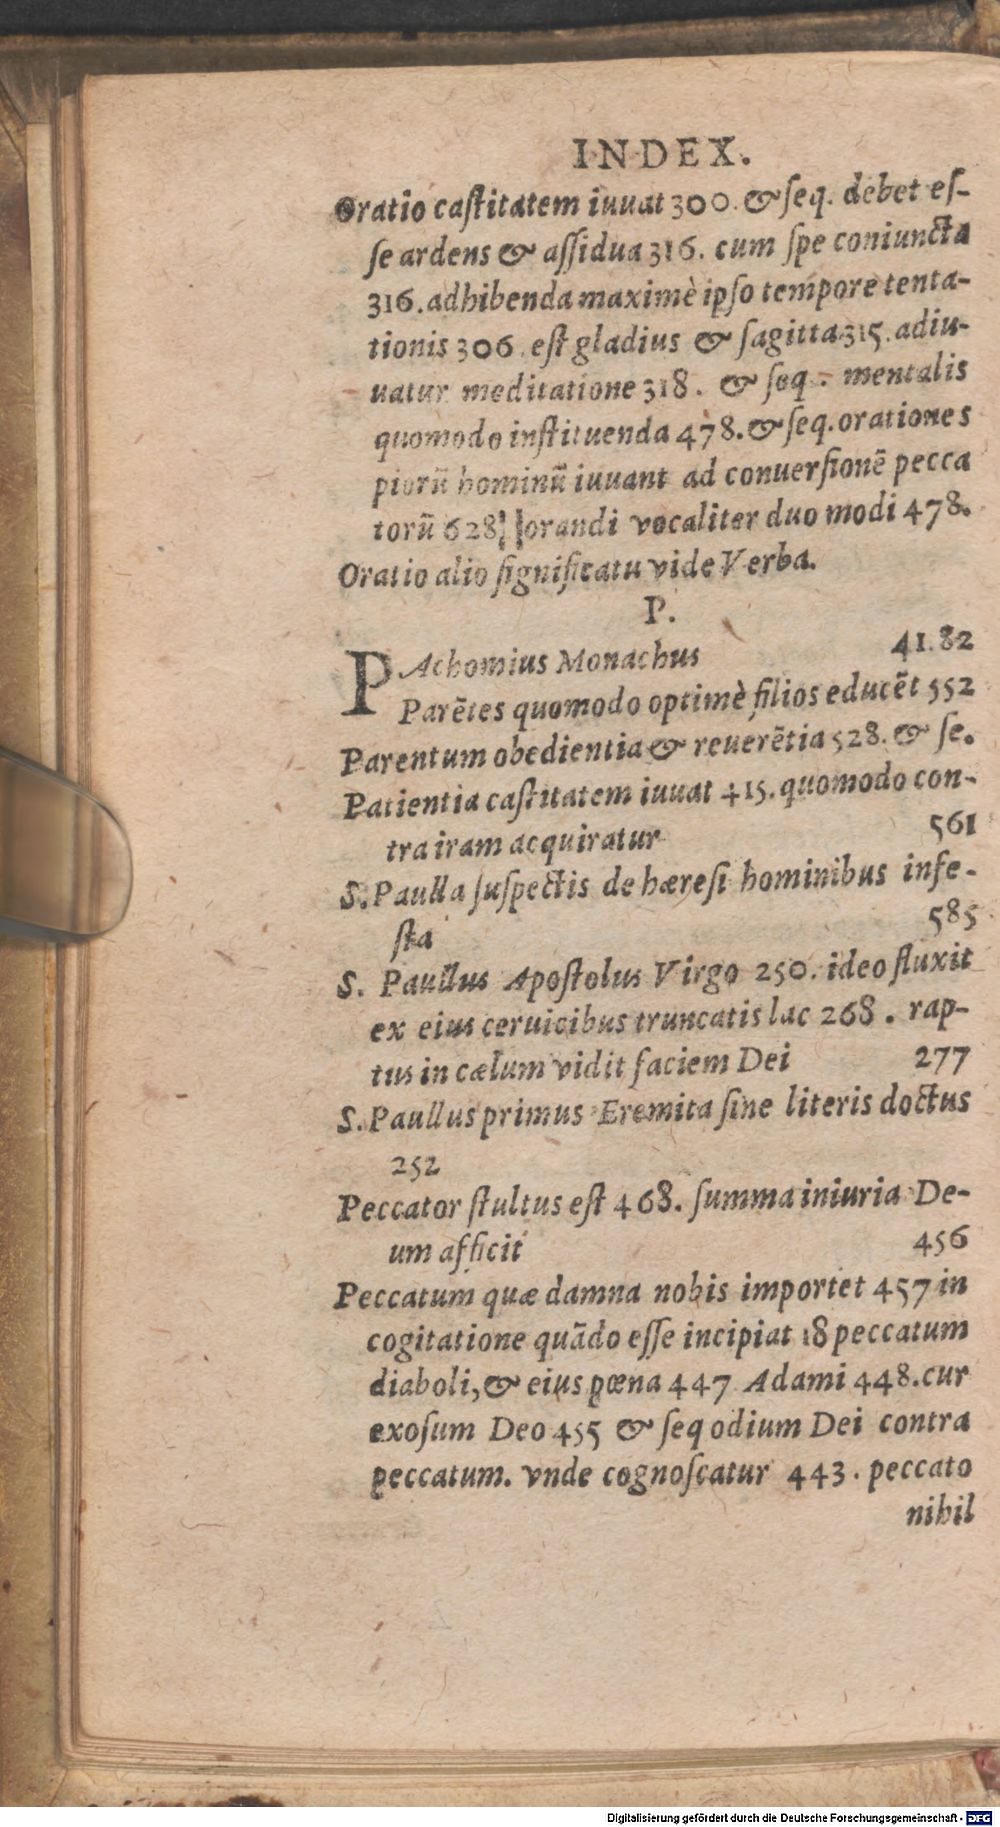 INDEX.
Oratio caſtitatem iuuat 300. & ſeq. debet eſ-
ſe ardens & aſſidua 316. cum ſpe coniuncta
316. adhibenda maximè ipſo tempore tenta-
tionis 306. eſt gladius & ſagitta 315. adiu-
uatur meditatione 318. & ſeq. mentalis
quomodo inſtituenda 478. & ſeq. orationes
piorũ hominũ iuuant ad conuerſionẽ pecca
torũ 628. orandi vocaliter duo modi 478.
Oratio alio ſignificatu vide Verba.
P.
PAchomius Monachus 41. 82
Parẽtes quomodo optimè filios educẽt 552
Parentum obedientia & reuerẽtia 528. & ſe.
Patientia caſtitatem iuuat 415. quomodo con-
tra iram acquiratur 561
S. Paulla ſuſpectis de hæreſi hominibus infe-
ſta 585
S. Paullus Apoſtolus Virgo 250. ideo fluxit
ex eius ceruicibus truncatis lac 268. rap-
tus in cælum vidit faciem Dei 277
S. Paullus primus Eremita ſine literis doctus
252
Peccator ſtultus eſt 468. ſumma iniuria De-
um afficit 456
Peccatum quæ damna nobis importet 457 in
cogitatione quãdo eſſe incipiat 18 peccatum
diaboli, & eius pœna 447 Adami 448. cur
exoſum Deo 455 & ſeq odium Dei contra
peccatum. vnde cognoſcatur 443. peccato
nihil
Digitalisierung gefördert durch die Deutsche Forschungsgemeinschaft - DFG